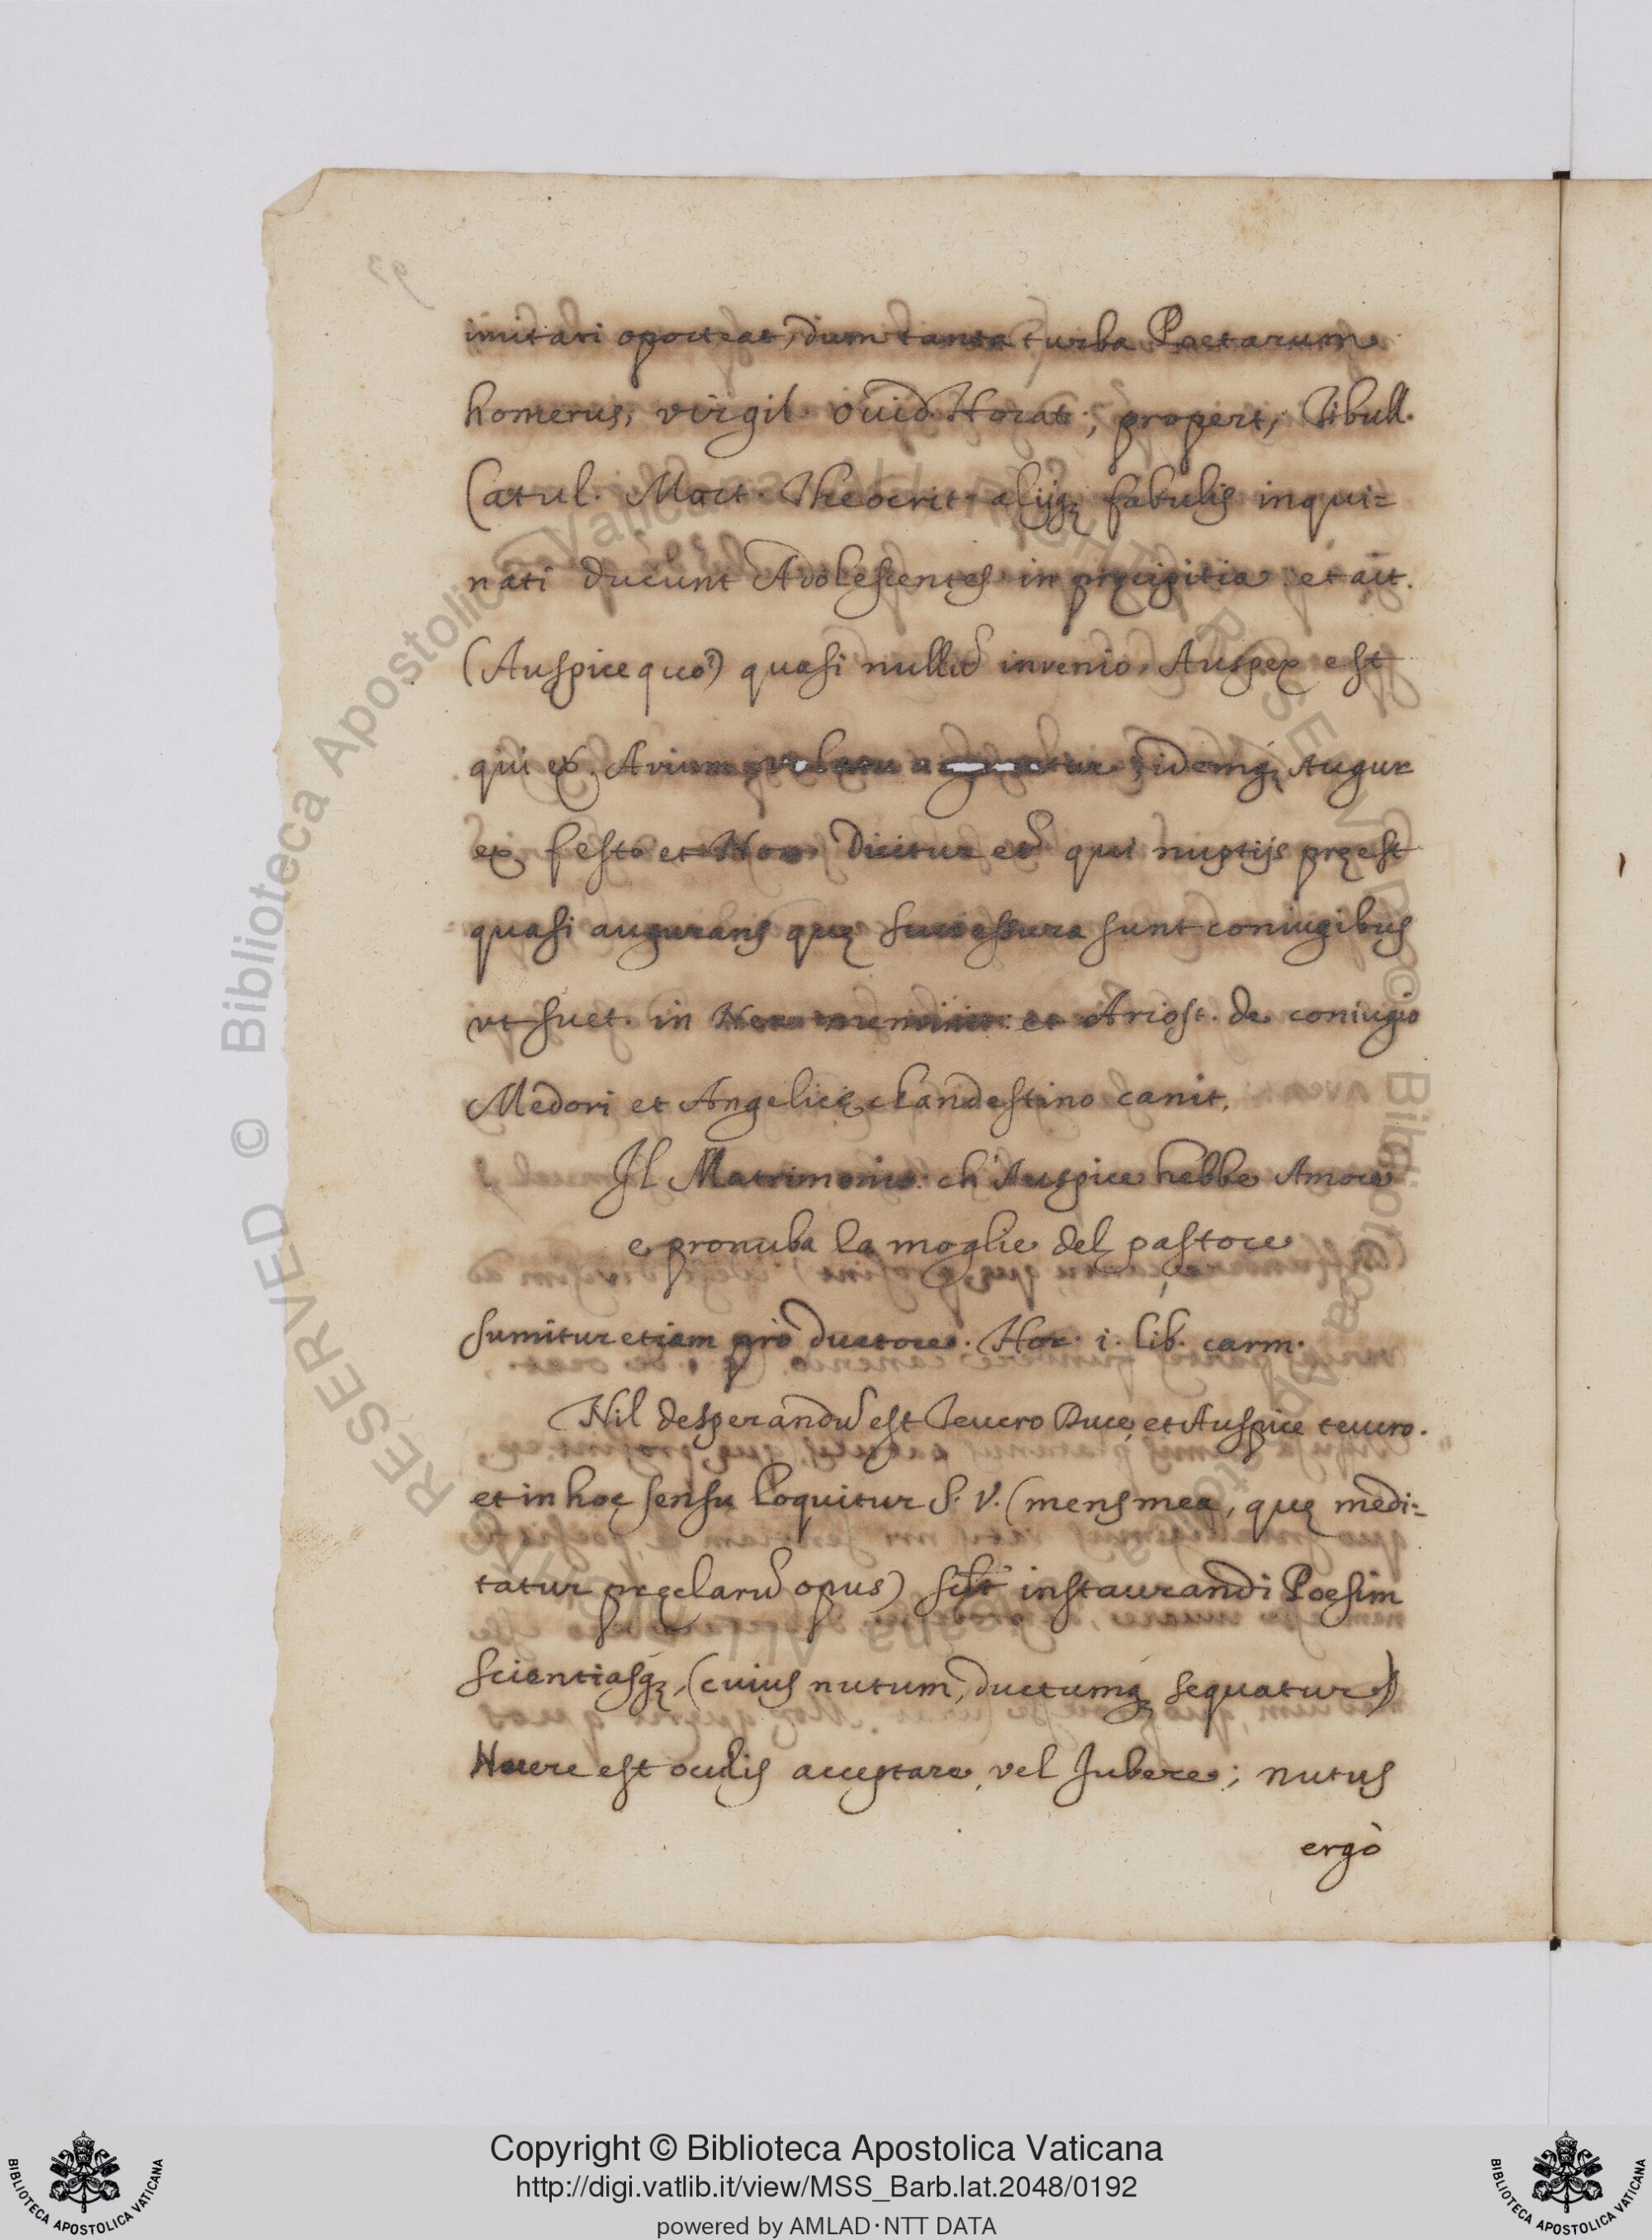 imitari oporteat, dum tanta turba Poetarum
homerus, virgil. ouid. Horat., propert, Tibull.
Catul. Mart. Theocrit. alijq; fabulis inqui=
nati ducunt Adolescentes in pręcipitia et ait.
(Auspice quo?) quasi nullũ invenio. Auspex est
qui ex Avium volatu idemq; Augur
ex festo et Non. Dicitur et qui nuptijs pręest
quasi augurans quę successura sunt coniugibus
vt suet. in et Ariost. de coniugio
Medori et Angelicę clandestino canit.
Il Matrimonio ch' Auspice hebbe Amore
e pronuba la moglie del pastore
sumitur etiam prò ductore. Hor. i. lib. carm.
Nil desperandũ est Teucro Duce, et Auspice teucro.
et in hoc sensu loquitur S. V. (mens mea, quę medi=
tatur pręclarũ opus) instaurandi Poesim
scientiasq; (cuius nutum, ductumq; sequatur)
Nuere est oculis acceptare, vel Jubere; nutus
ergò
Copyright © Biblioteca Apostolica Vaticana
http://digi.vatlib.it/view/MSS_Barb.lat.2048/0192
powered by AMLAD·NTT DATA